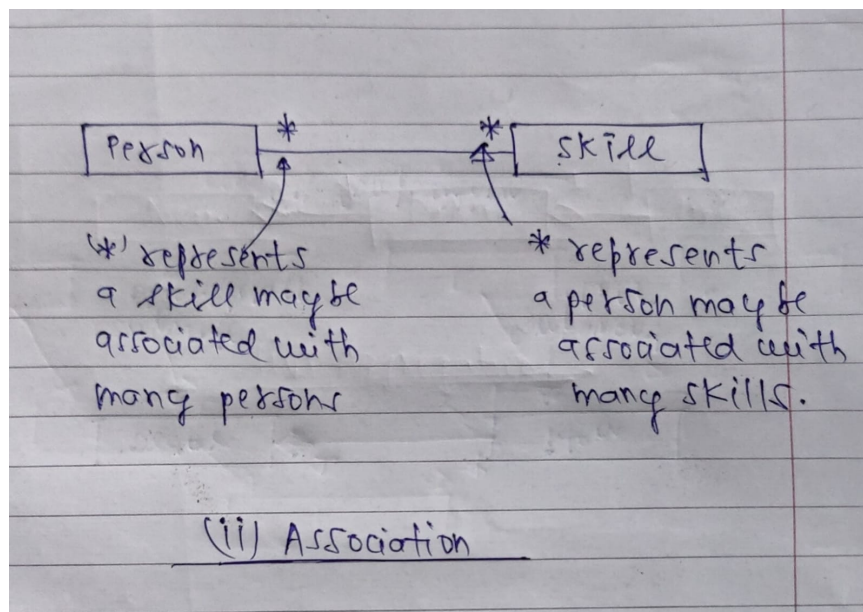 Person * * Skill
'*' represents
a skill may be
associated with
many persons
* represents
a person may be
associated with
many skills.
(ii) Association